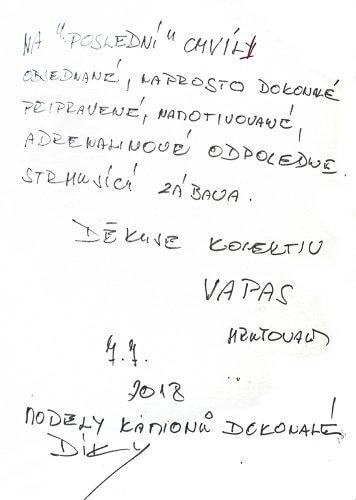 NA "POSLEDNÍ" CHVÍLI
OBJEDNANÉ, NAPROSTO DOKONALÉ
PŘIPRAVENÉ, NAMOTIVOVANÉ,
ADRENALINOVÉ ODPOLEDNE.
STRHUJÍCÍ ZÁBAVA.
DĚKUJE KOLEKTIV
VAPAS
7.7.
2018
MODELY KAMIONŮ DOKONALÉ!
DÍKY